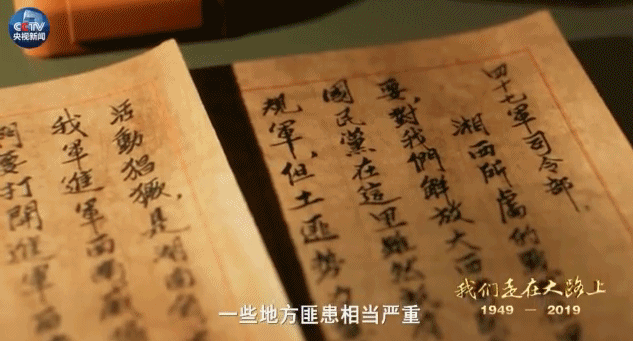 CCTV
央视新闻
四十七軍司令部
湘西所處的戰
要,對我們解放大西
國民黨在這里雖然
規軍,但土匪勢
活動猖獗,是湖南
我軍進軍西南
要打開進軍西
我们走在大路上
1949 — 2019
一些地方匪患相当严重